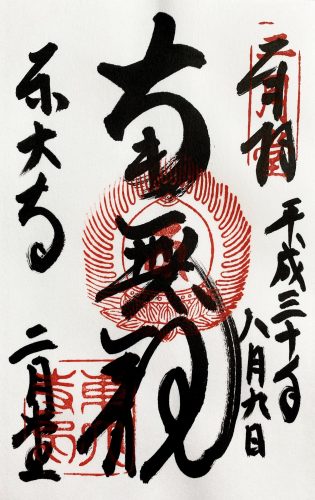 奉拝
平成三十年
八月九日
南無観
東大寺
二月堂
二月堂